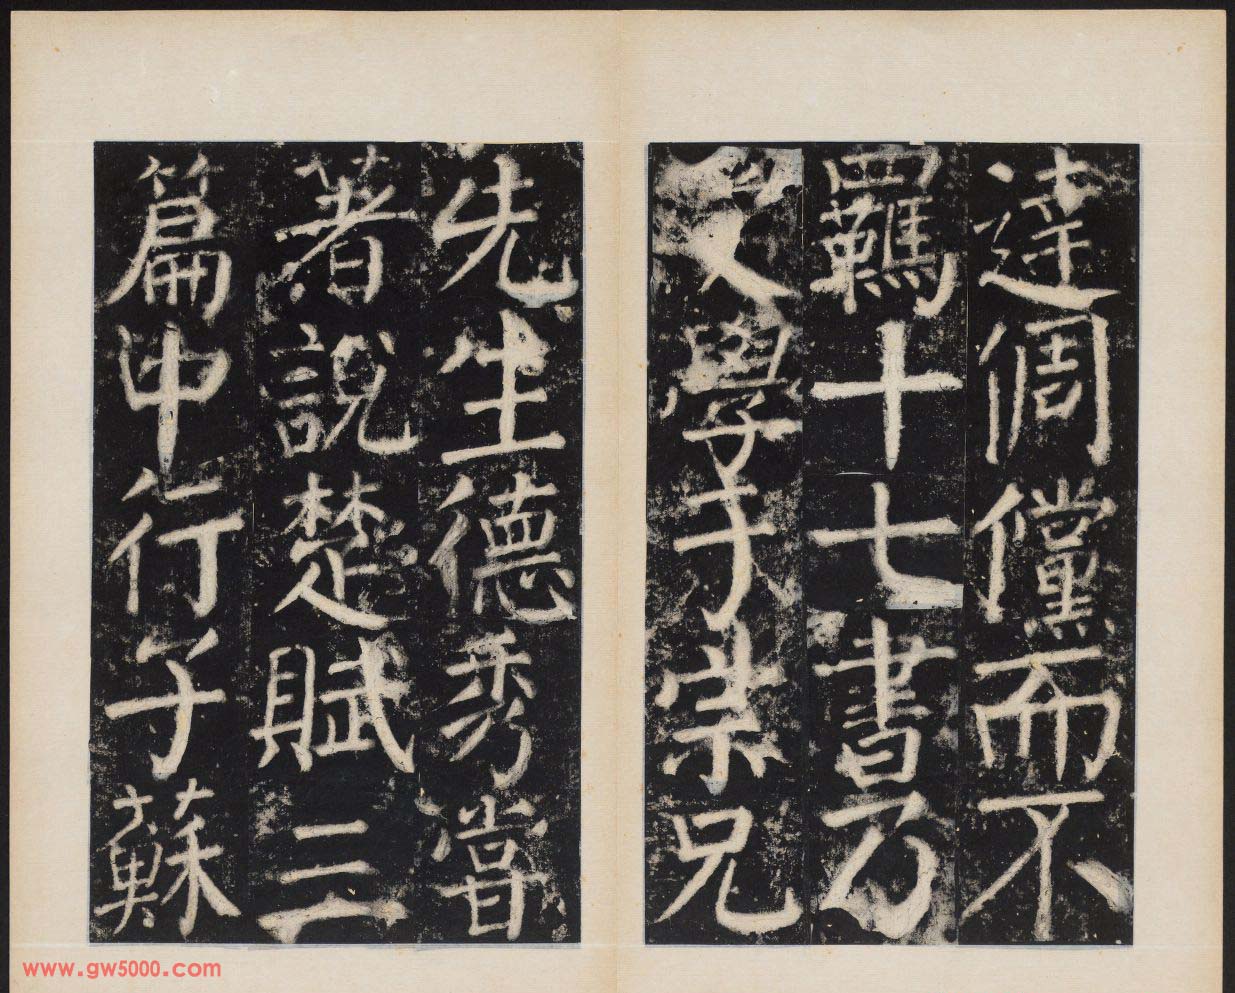 達倜儻而不
羈十七書乃
受學于宗兄
先生德秀嘗
著說楚賦三
篇中行子蘇
www.gw5000.com